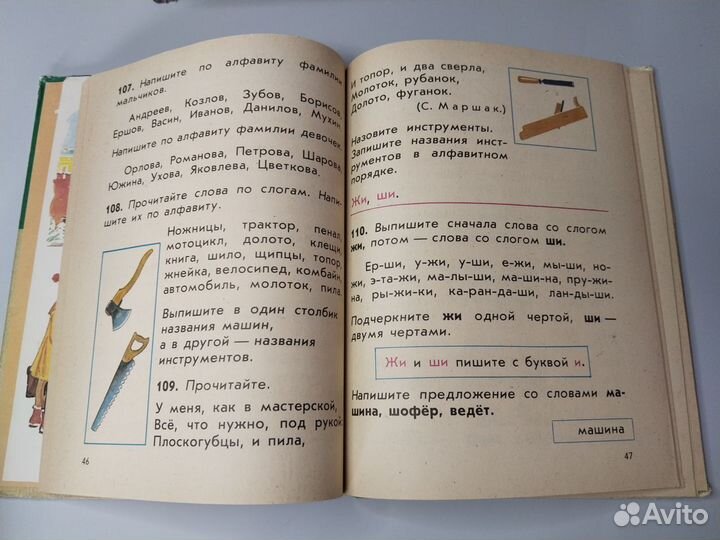 107. Напишите по алфавиту фамилии
мальчиков.
Андреев, Козлов, Зубов, Борисов,
Ершов, Васин, Иванов, Данилов, Мухин.
Напишите по алфавиту фамилии девочек.
Орлова, Романова, Петрова, Шарова,
Южина, Ухова, Яковлева, Цветкова.
108. Прочитайте слова по слогам. Напи-
шите их по алфавиту.
Ножницы, трактор, пенал,
мотоцикл, долото, клещи,
книга, шило, щипцы, топор,
жнейка, велосипед, комбайн,
автомобиль, молоток, пила.
Выпишите в один столбик
названия машин,
а в другой — названия
инструментов.
109. Прочитайте.
У меня, как в мастерской,
Всё, что нужно, под рукой
Плоскогубцы, и пила,
46
И топор, и два сверла,
Молоток, рубанок,
Долото, фуганок.
(С. Маршак.)
Назовите инструменты.
Запишите названия инст-
рументов в алфавитном
порядке.
Жи, ши.
110. Выпишите сначала слова со слогом
жи, потом — слова со слогом ши.
Ер-ши, у-жи, у-ши, е-жи, мы-ши, но-
жи, э-та-жи, ма-лы-ши, ма-ши-на, пру-жи-
на, ры-жи-ки, ка-ран-да-ши, лан-ды-ши.
Подчеркните жи одной чертой, ши —
двумя чертами.
Жи и ши пишите с буквой и.
Напишите предложение со словами ма-
шина, шофёр, ведёт.
машина
47
Avito